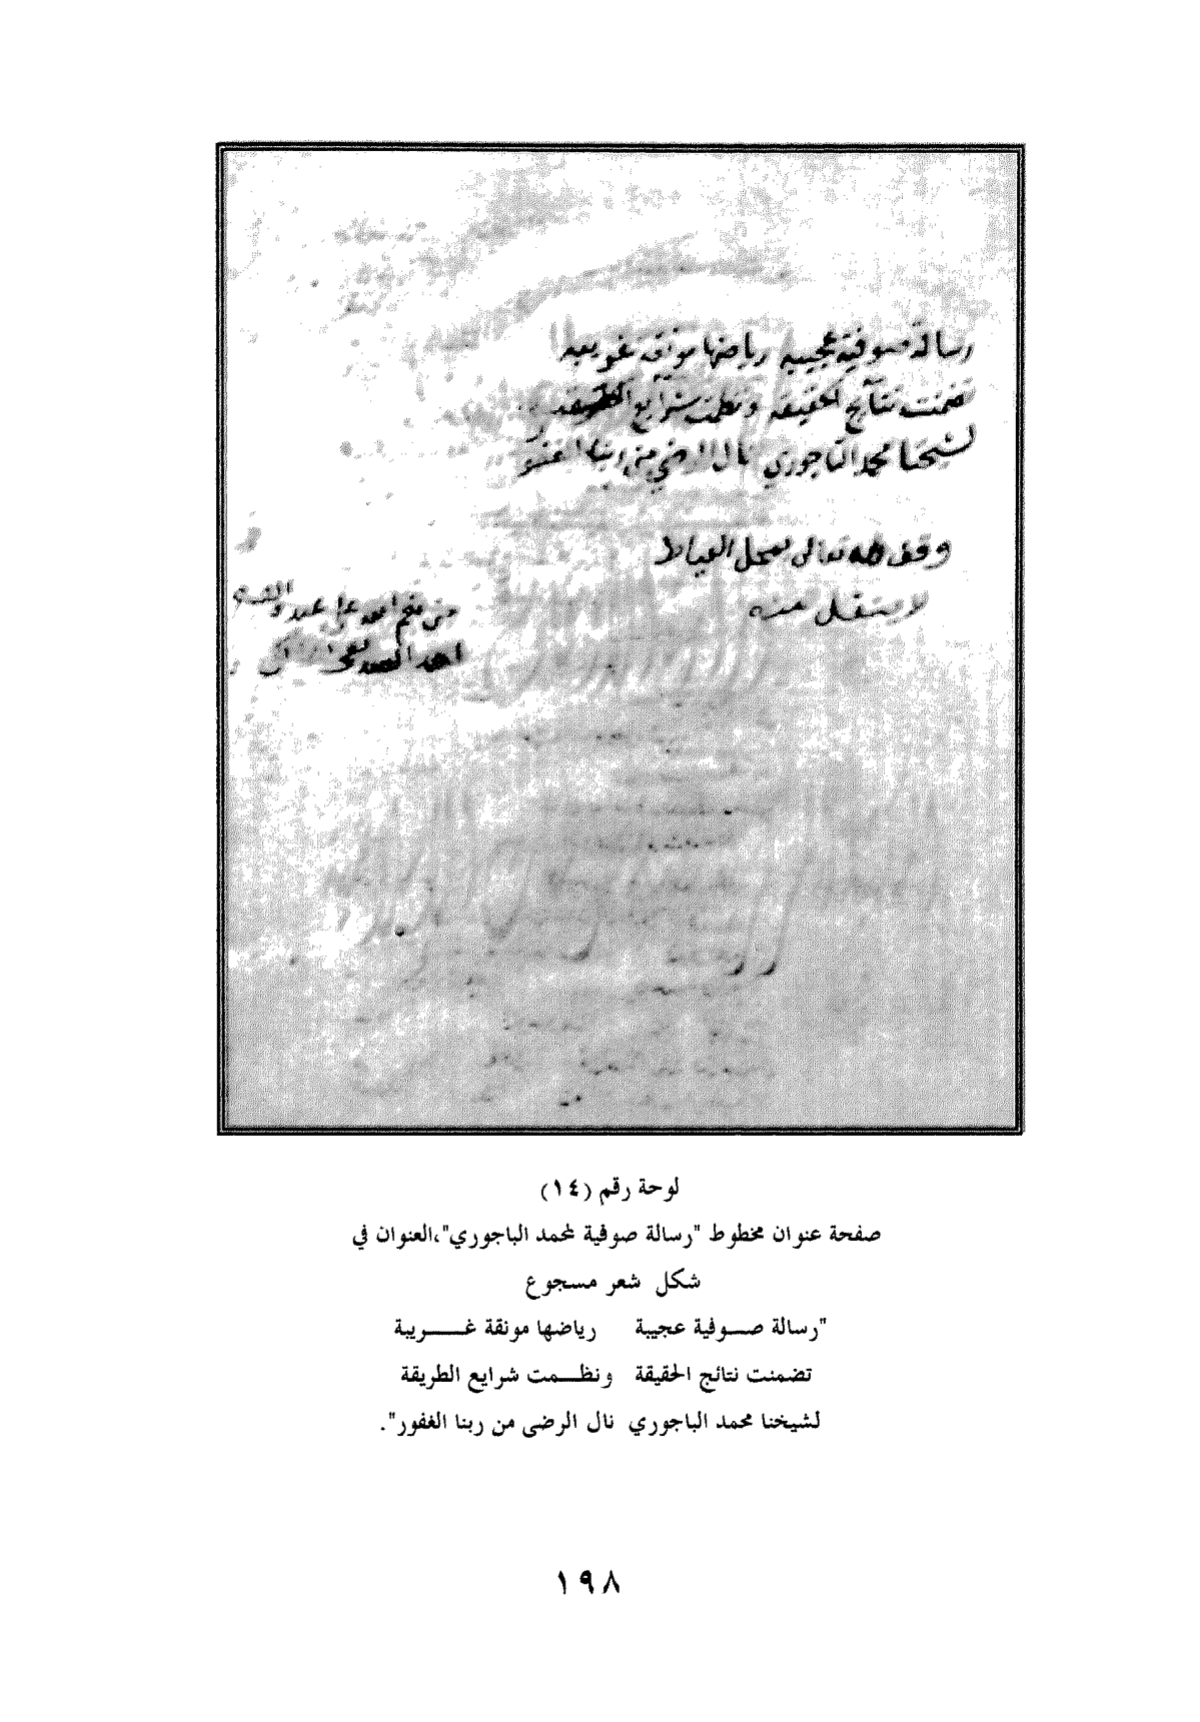 رسالة صوفية عجيبه رياضها مونقة غريبه
تضمنت نتآيج الحقيقه ونظمت شرايع الطريقه
لشيخنا محمد الباجوري نال الرضى من ربنا الغفور
وقف لله تعالى بمحل العياط
لا ينتقل منه
من فتح الله على عبده الفقير
احمد
لوحة رقم (١٤)
صفحة عنوان مخطوط "رسالة صوفية لمحمد الباجوري"،العنوان في
شكل شعر مسجوع
"رسالة صـــوفية عجيبة رياضها مونقة غـــــريبة
تضمنت نتائج الحقيقة ونظـــمت شرايع الطريقة
لشيخنا محمد الباجوري نال الرضى من ربنا الغفور".
١٩٨